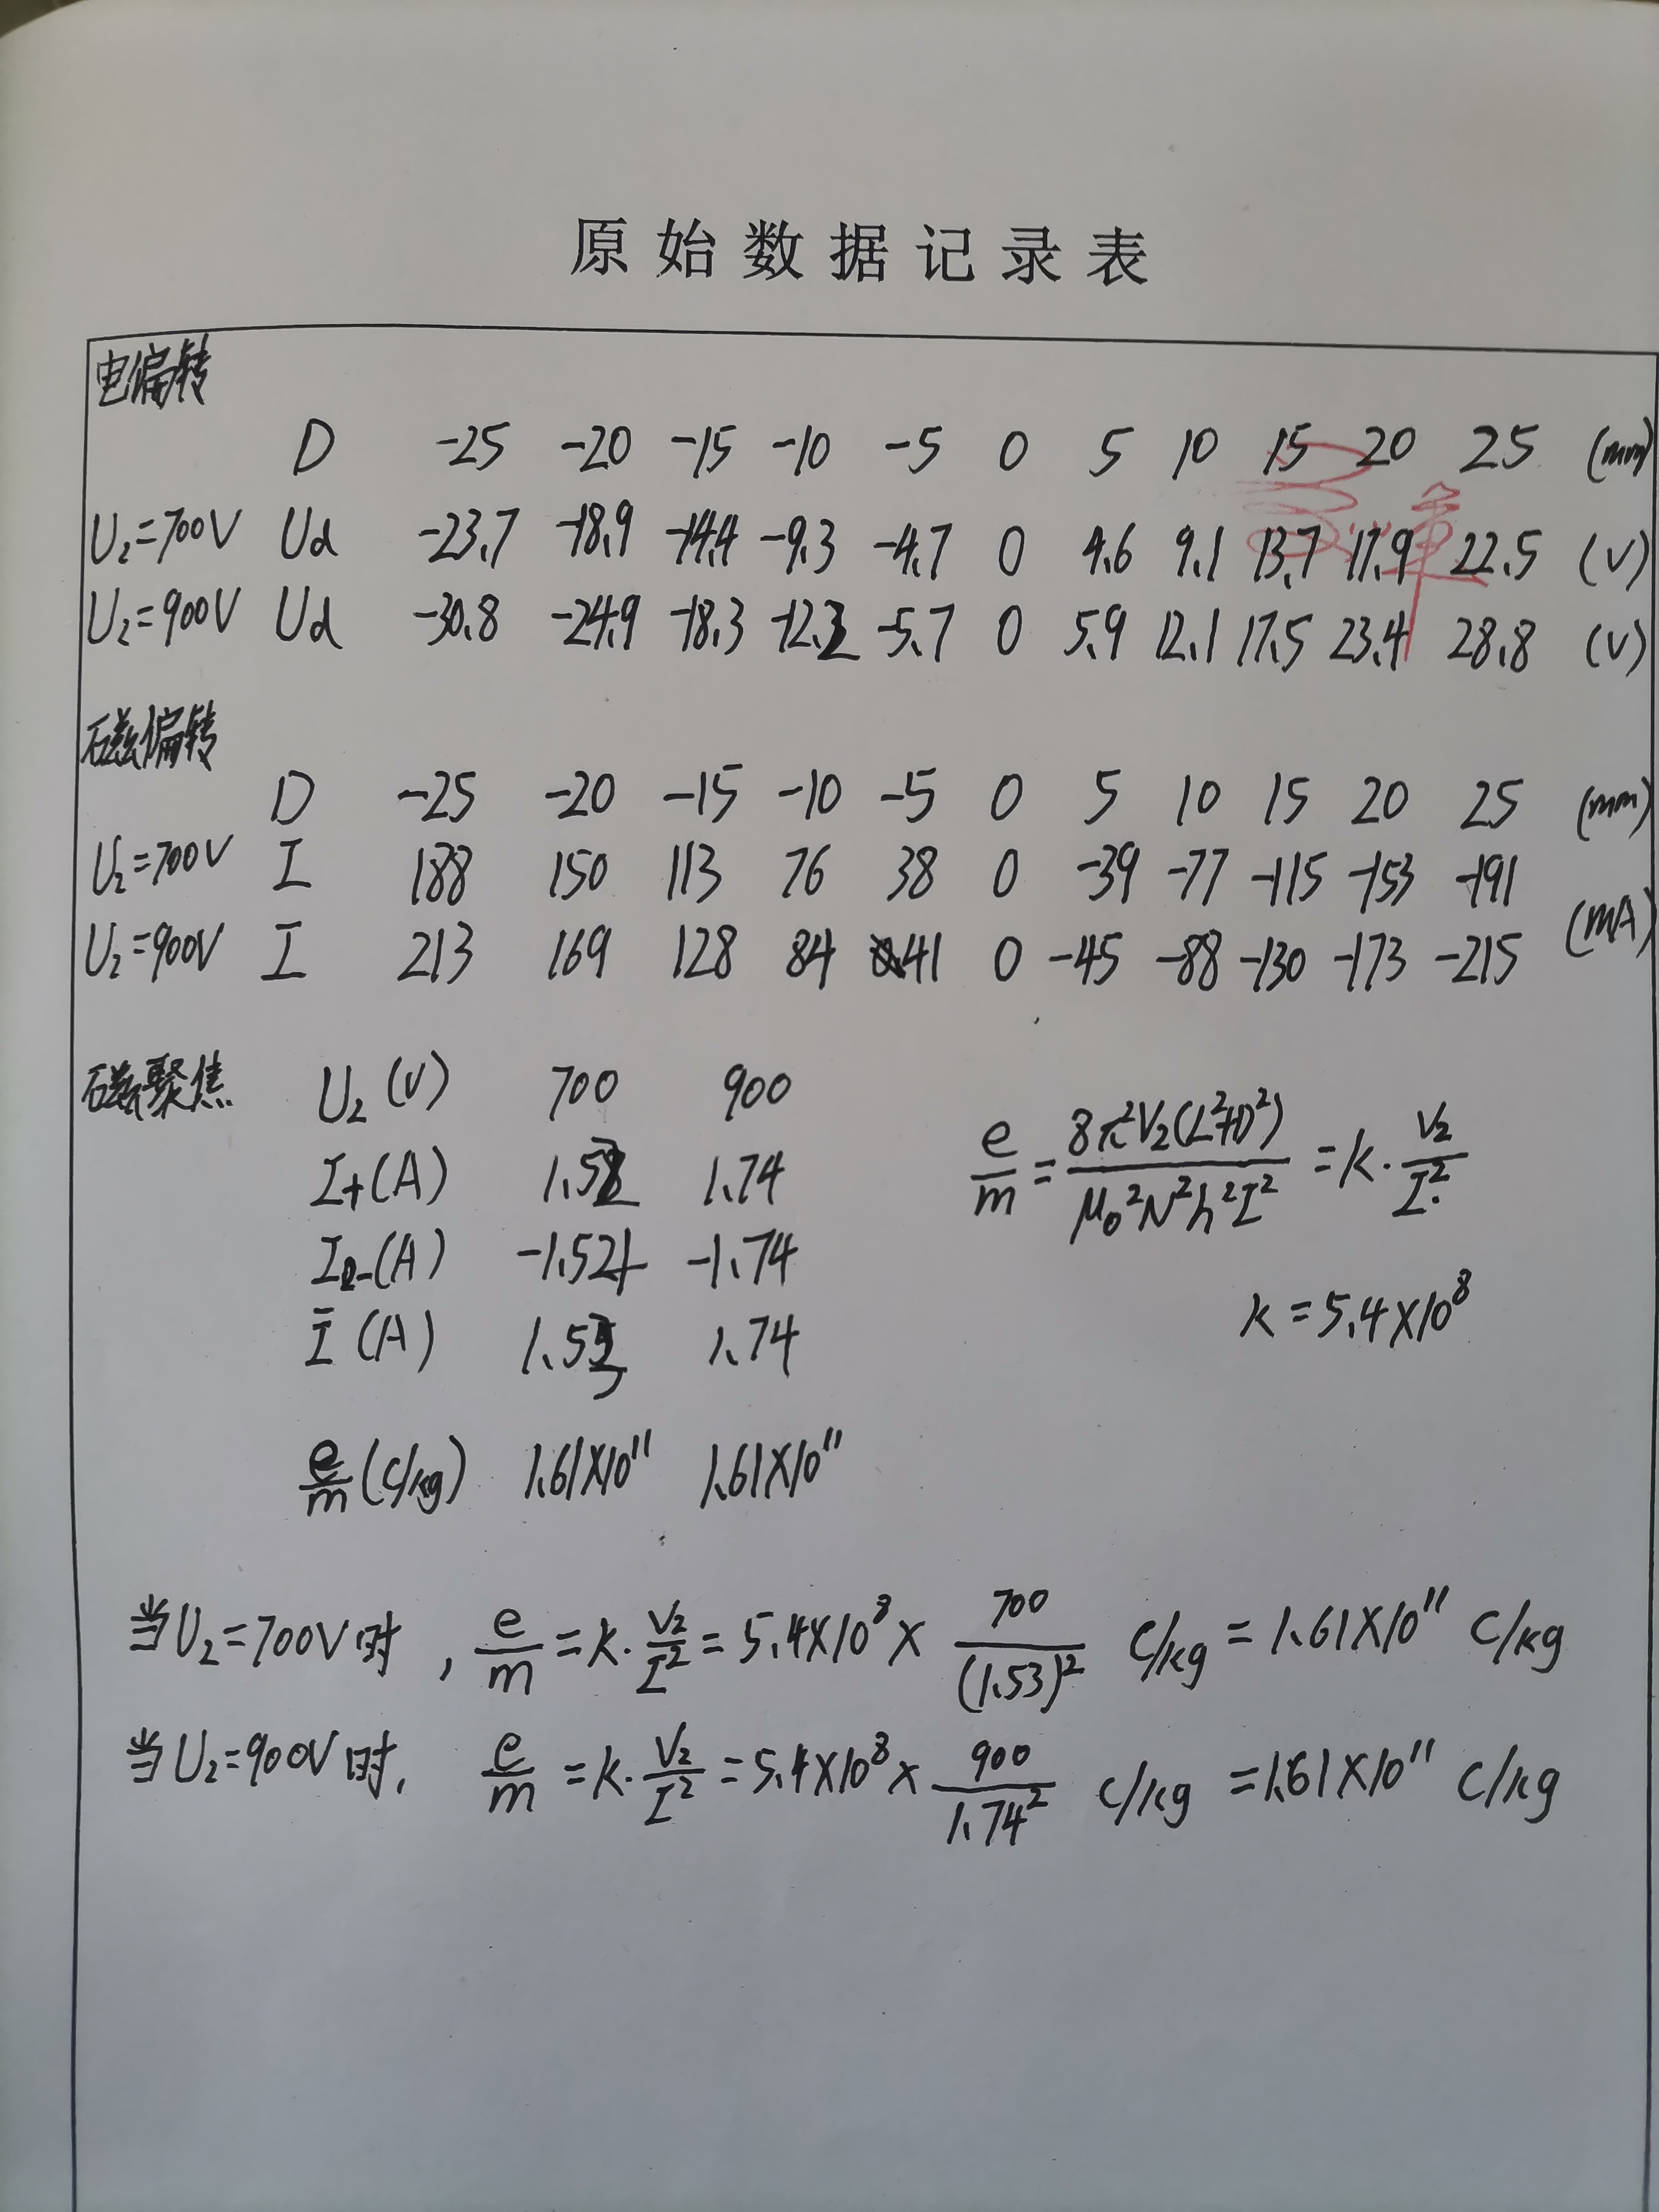 原始数据记录表
电偏转
D -25 -20 -15 -10 -5 0 5 10 15 20 25 (mm)
U₂=700V Ud -23.7 -18.9 -14.4 -9.3 -4.7 0 4.6 9.1 13.7 17.9 22.5 (V)
U₂=900V Ud -30.8 -24.9 -18.3 -12.2 -5.7 0 5.9 12.1 17.5 23.4 28.8 (V)
磁偏转
D -25 -20 -15 -10 -5 0 5 10 15 20 25 (mm)
U₂=700V I 188 150 113 76 38 0 -39 -77 -115 -153 -191
(mA)
U₂=900V I 213 169 128 84 41 0 -45 -88 -130 -173 -215
磁聚焦 U₂(V) 700 900
e/m = 8π²V₂(L²+D²)/μ₀²N²h²I² = k·V₂/I²
I+(A) 1.52 1.74
I-(A) -1.54 -1.74
k=5.4×10⁸
Ī(A) 1.53 1.74
e/m(C/kg) 1.61×10¹¹ 1.61×10¹¹
当U₂=700V时, e/m=k·V₂/I²=5.4×10⁸×700/(1.53)² C/kg=1.61×10¹¹ C/kg
当U₂=900V时, e/m=k·V₂/I²=5.4×10⁸×900/1.74² C/kg=1.61×10¹¹ C/kg